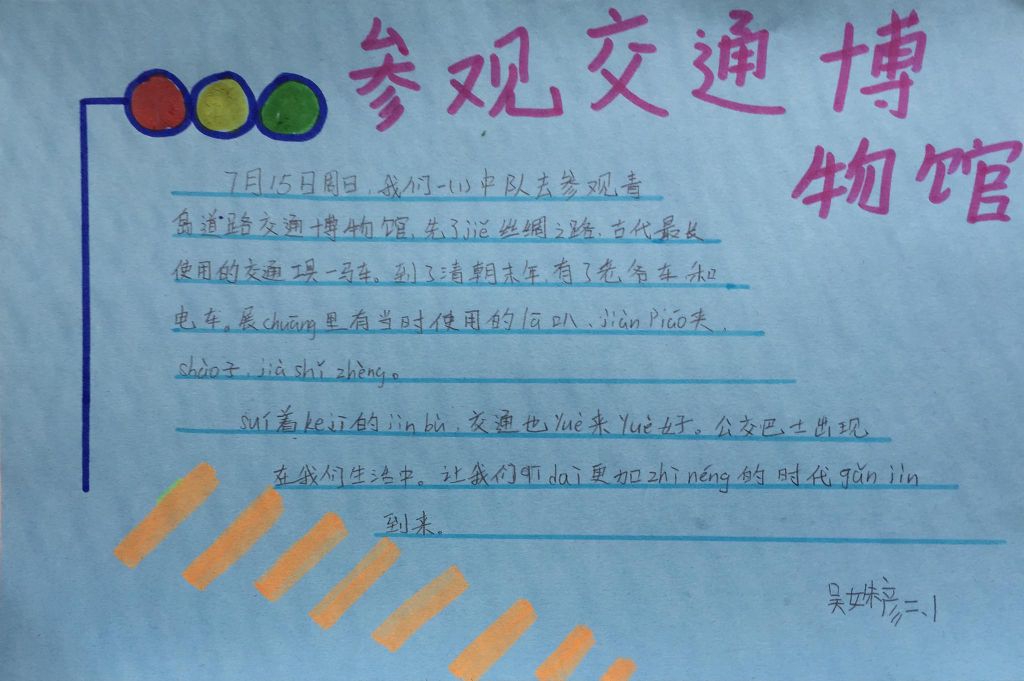 参观交通博
物馆
7月15日周日,我们一(1)中队去参观青
岛道路交通博物馆,先了jiě丝绸之路、古代最长
使用的交通工具—马车。到了清朝末年,有了老爷车和
电车。展chuāng里有当时使用的lǎ叭、jiǎn Piào夹、
shào子、jià shǐ zhèng。
suí着kejì的jìn bù,交通也yuè来yuè好。公交巴士出现
在我们生活中。让我们qī dài更加zhì néng的时代gǎn jǐn
到来。
吴姝彦二、1